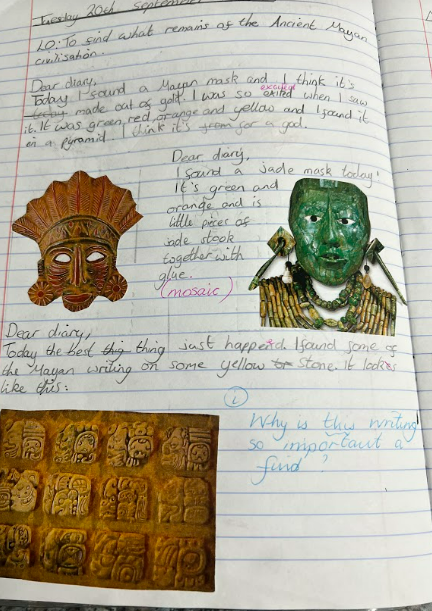 Tuesday 20th September
LO: To find what remains of the Ancient Mayan
civilisation.
Dear diary,
Today I found a Mayan mask and I think it's
made out of gold. I was so exited when I saw
excited
it. It was green, red, orange and yellow and I found it
in a pyramid. I think it's from for a god.
Dear diary,
I found a jade mask today!
It's green and
orange and is
little pieces of
jade stook
together with
glue.
(mosaic)
Dear diary,
Today the best thig thing just happend. I found some of
the Mayan writing on some yellow stone. It looks
like this:
i
Why is this writing
so important a
find?